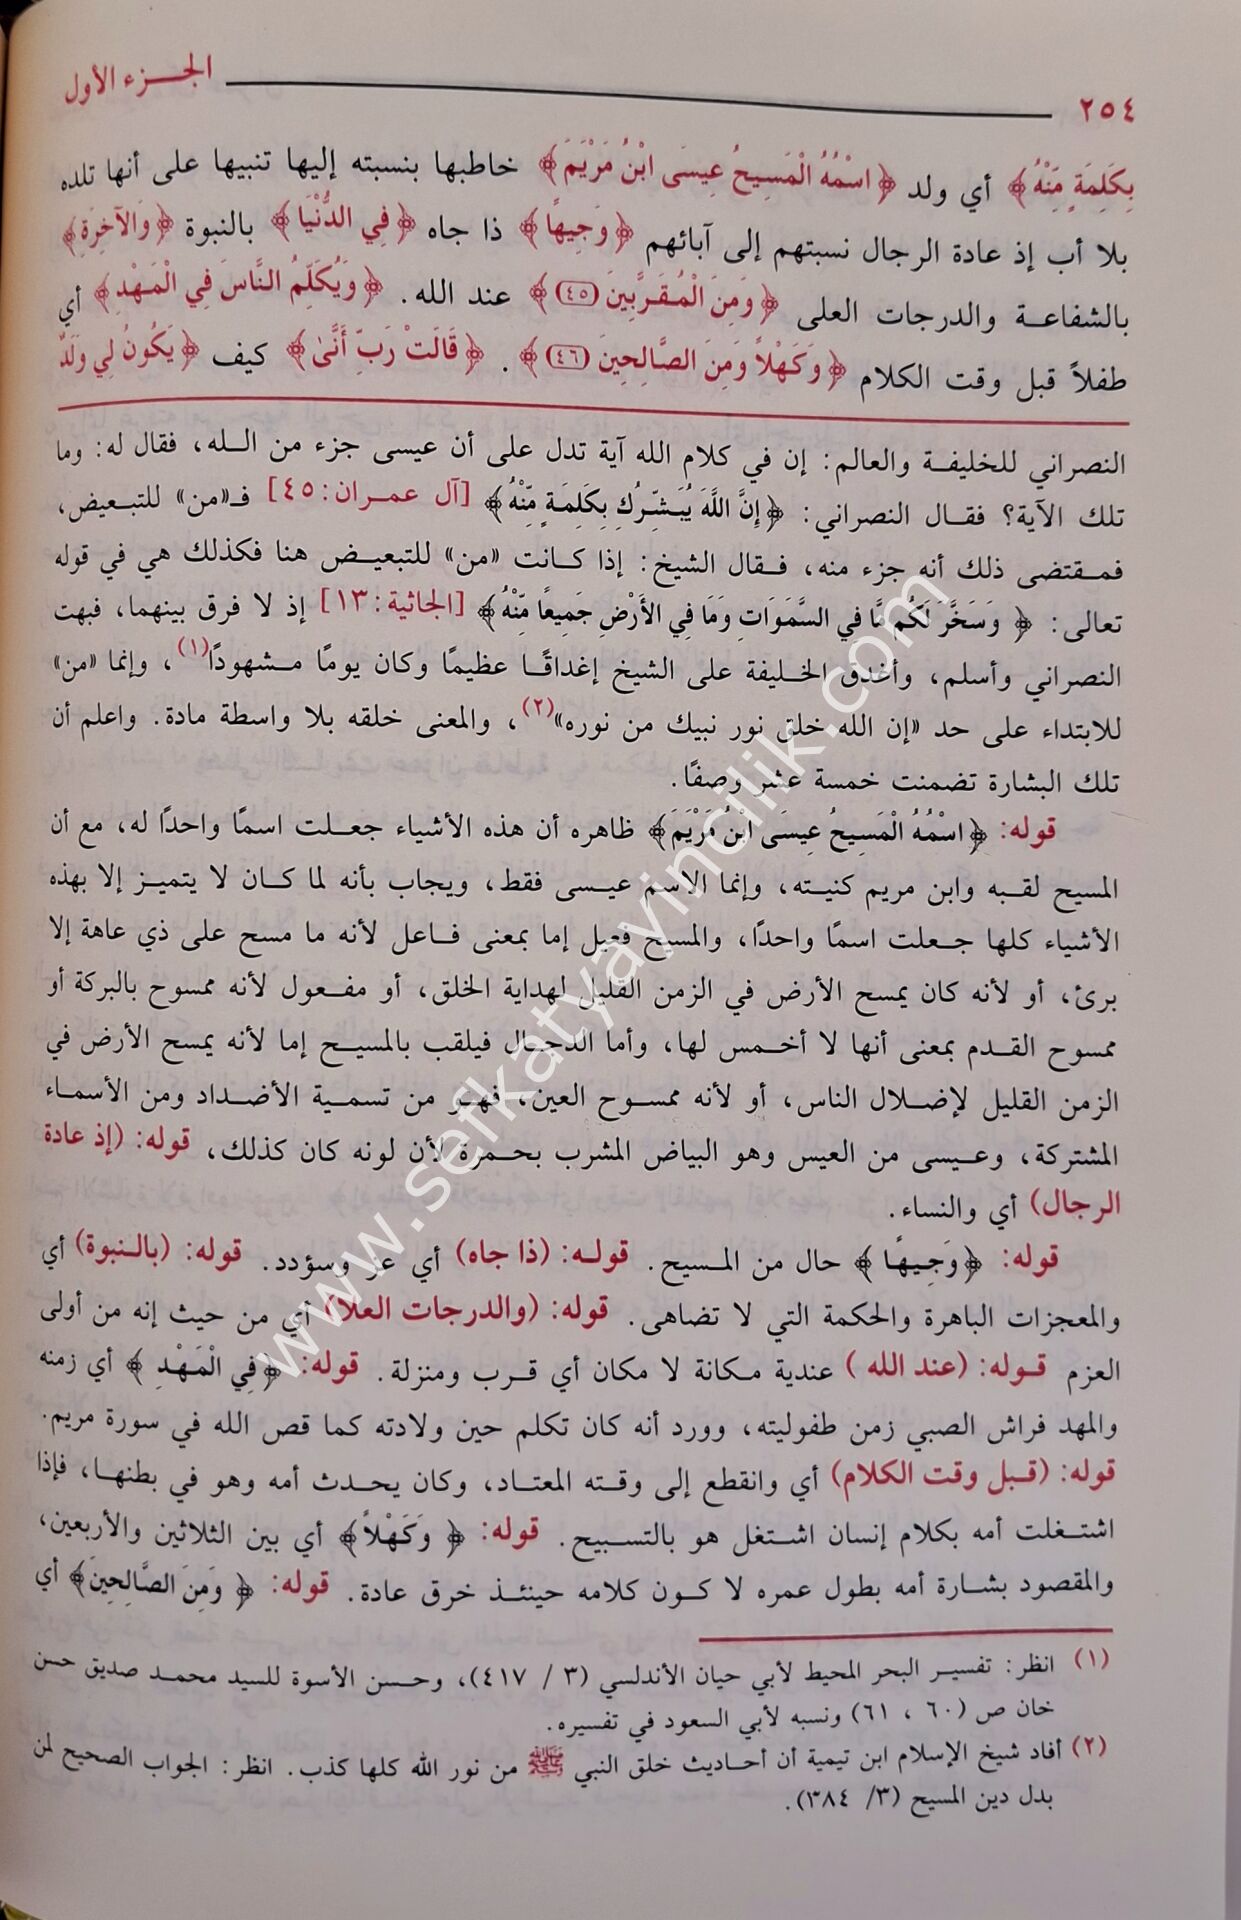 ٢٥٤ الجـــزء الأول
بِكَلِمَةٍ مِّنْهُ﴾ أي ولد ﴿اسْمُهُ الْمَسِيحُ عِيسَى ابْنُ مَرْيَمَ﴾ خاطبها بنسبته إليها تنبيها على أنها تلده
بلا أب إذ عادة الرجال نسبتهم إلى آبائهم ﴿وَجِيهًا﴾ ذا جاه ﴿فِي الدُّنْيَا﴾ بالنبوة ﴿وَالآخِرَةِ﴾
بالشفاعـة والدرجات العلى ﴿وَمِنَ الْمُقَرَّبِينَ (٤٥)﴾ عند الله. ﴿وَيُكَلِّمُ النَّاسَ فِي الْمَهْدِ﴾ أي
طفلاً قبل وقت الكلام ﴿وَكَهْلاً وَمِنَ الصَّالِحِينَ (٤٦)﴾. ﴿قَالَتْ رَبِّ أَنَّىٰ﴾ كيف ﴿يَكُونُ لِي وَلَدٌ
النصراني للخليفـة والعالم: إن في كلام الله آية تدل على أن عيسى جزء من الـله، فقال له: وما
تلك الآية؟ فقـال النصراني: ﴿إِنَّ اللَّهَ يُبَشِّرُكِ بِكَلِمَةٍ مِّنْهُ﴾ [آل عمـران:٤٥] فـ«من» للتبـعيض،
فمـقتضى ذلك أنه جزء منه، فـقال الشيخ: إذا كـانت «من» للتبعيـض هنا فكذلك هي في قوله
تعالى: ﴿وَسَخَّرَ لَكُم مَّا فِي السَّمَوَاتِ وَمَا فِي الأَرْضِ جَمِيعًا مِّنْهُ﴾ [الجاثية:١٣] إذ لا فرق بينهما، فبهت
النصراني وأسلم، وأغدق الخلـيفة على الشيخ إغداقًـا عظيمًا وكان يومًا مـشهودًا(١)، وإنما «من»
للابتداء على حد «إن الله خلق نور نبيك من نوره»(٢)، والمعنى خلقه بلا واسطة مادة. واعلم أن
تلك البشارة تضمنت خمسة عشر وصفًا.
قوله: ﴿اسْمُهُ الْمَسِيحُ عِيسَى ابْنُ مَرْيَمَ﴾ ظاهره أن هذه الأشياء جعـلت اسمًا واحدًا له، مع أن
المسيح لقبه وابن مريم كنيـته، وإنما الاسم عيـسى فقط، ويجاب بأنه لما كـان لا يتميـز إلا بهذه
الأشياء كلها جـعلت اسمًا واحدًا، والمسيح فعيل إما بمعنى فـاعل لأنه ما مسح على ذي عاهة إلا
برئ، أو لأنه كان يمسح الأرض في الزمن القليل لهداية الخلق، أو مفـعول لأنه ممسوح بالبركة أو
ممسوح القـدم بمعنى أنها لا أخـمس لها، وأما الدجـال فيلقب بالمسيـح إما لأنه يمسح الأرض في
الزمن القليل لإضـلال الناس، أو لأنه ممسوح العين، فهـو من تسمـية الأضـداد ومن الأسمـاء
المشتركة، وعـيسى من العيس وهو البياض المشرب بحـمرة لأن لونه كان كذلك، قوله: (إذ عادة
الرجال) أي والنساء.
قوله: ﴿وَجِيهًا﴾ حال من المـسيح. قولـه: (ذا جاه) أي عز وسؤدد. قوله: (بالـنبوة) أي
والمعجزات الباهرة والحكمة التي لا تضاهى. قوله: (والدرجات العلا) أي من حيث إنه من أولى
العزم قـوله: (عند الله ) عندية مـكانة لا مكان أي قـرب ومنزلة. قوله: ﴿فِي الْمَهْدِ ﴾ أي زمنه
والمهد فراش الصبي زمن طفوليته، وورد أنه كان تكلم حين ولادته كما قص الله في سورة مريم.
قوله: (قـبل وقت الكلام) أي وانقطع إلى وقـته المعتـاد، وكان يحـدث أمه وهو في بطنهـا، فإذا
اشتـغلت أمه بكلام إنسان اشـتغل هو بالتسـبيح. قوله: ﴿وَكَهْلاً﴾ أي بين الثلاثين والأربعين،
والمقصود بشـارة أمه بطول عمره لا كـون كلامه حينئـذ خرق عادة. قوله: ﴿وَمِنَ الصَّالِحِينَ﴾ أي
(١) انظر: تفسيـر البحر المحيط لأبي حيان الأندلسي (٣ / ٤١٧)، وحـسن الأسوة للسيد محمـد صديق حسن
خان ص (٦٠ ، ٦١) ونسبه لأبي السعود في تفسيره.
(٢) أفاد شيخ الإسلام ابن تيمية أن أحـاديث خلق النبي ﷺ من نور الله كلها كذب. انظر: الجواب الصحيح لمن
بدل دين المسيح (٣/ ٣٨٤).
www.sefkatyayincilik.com